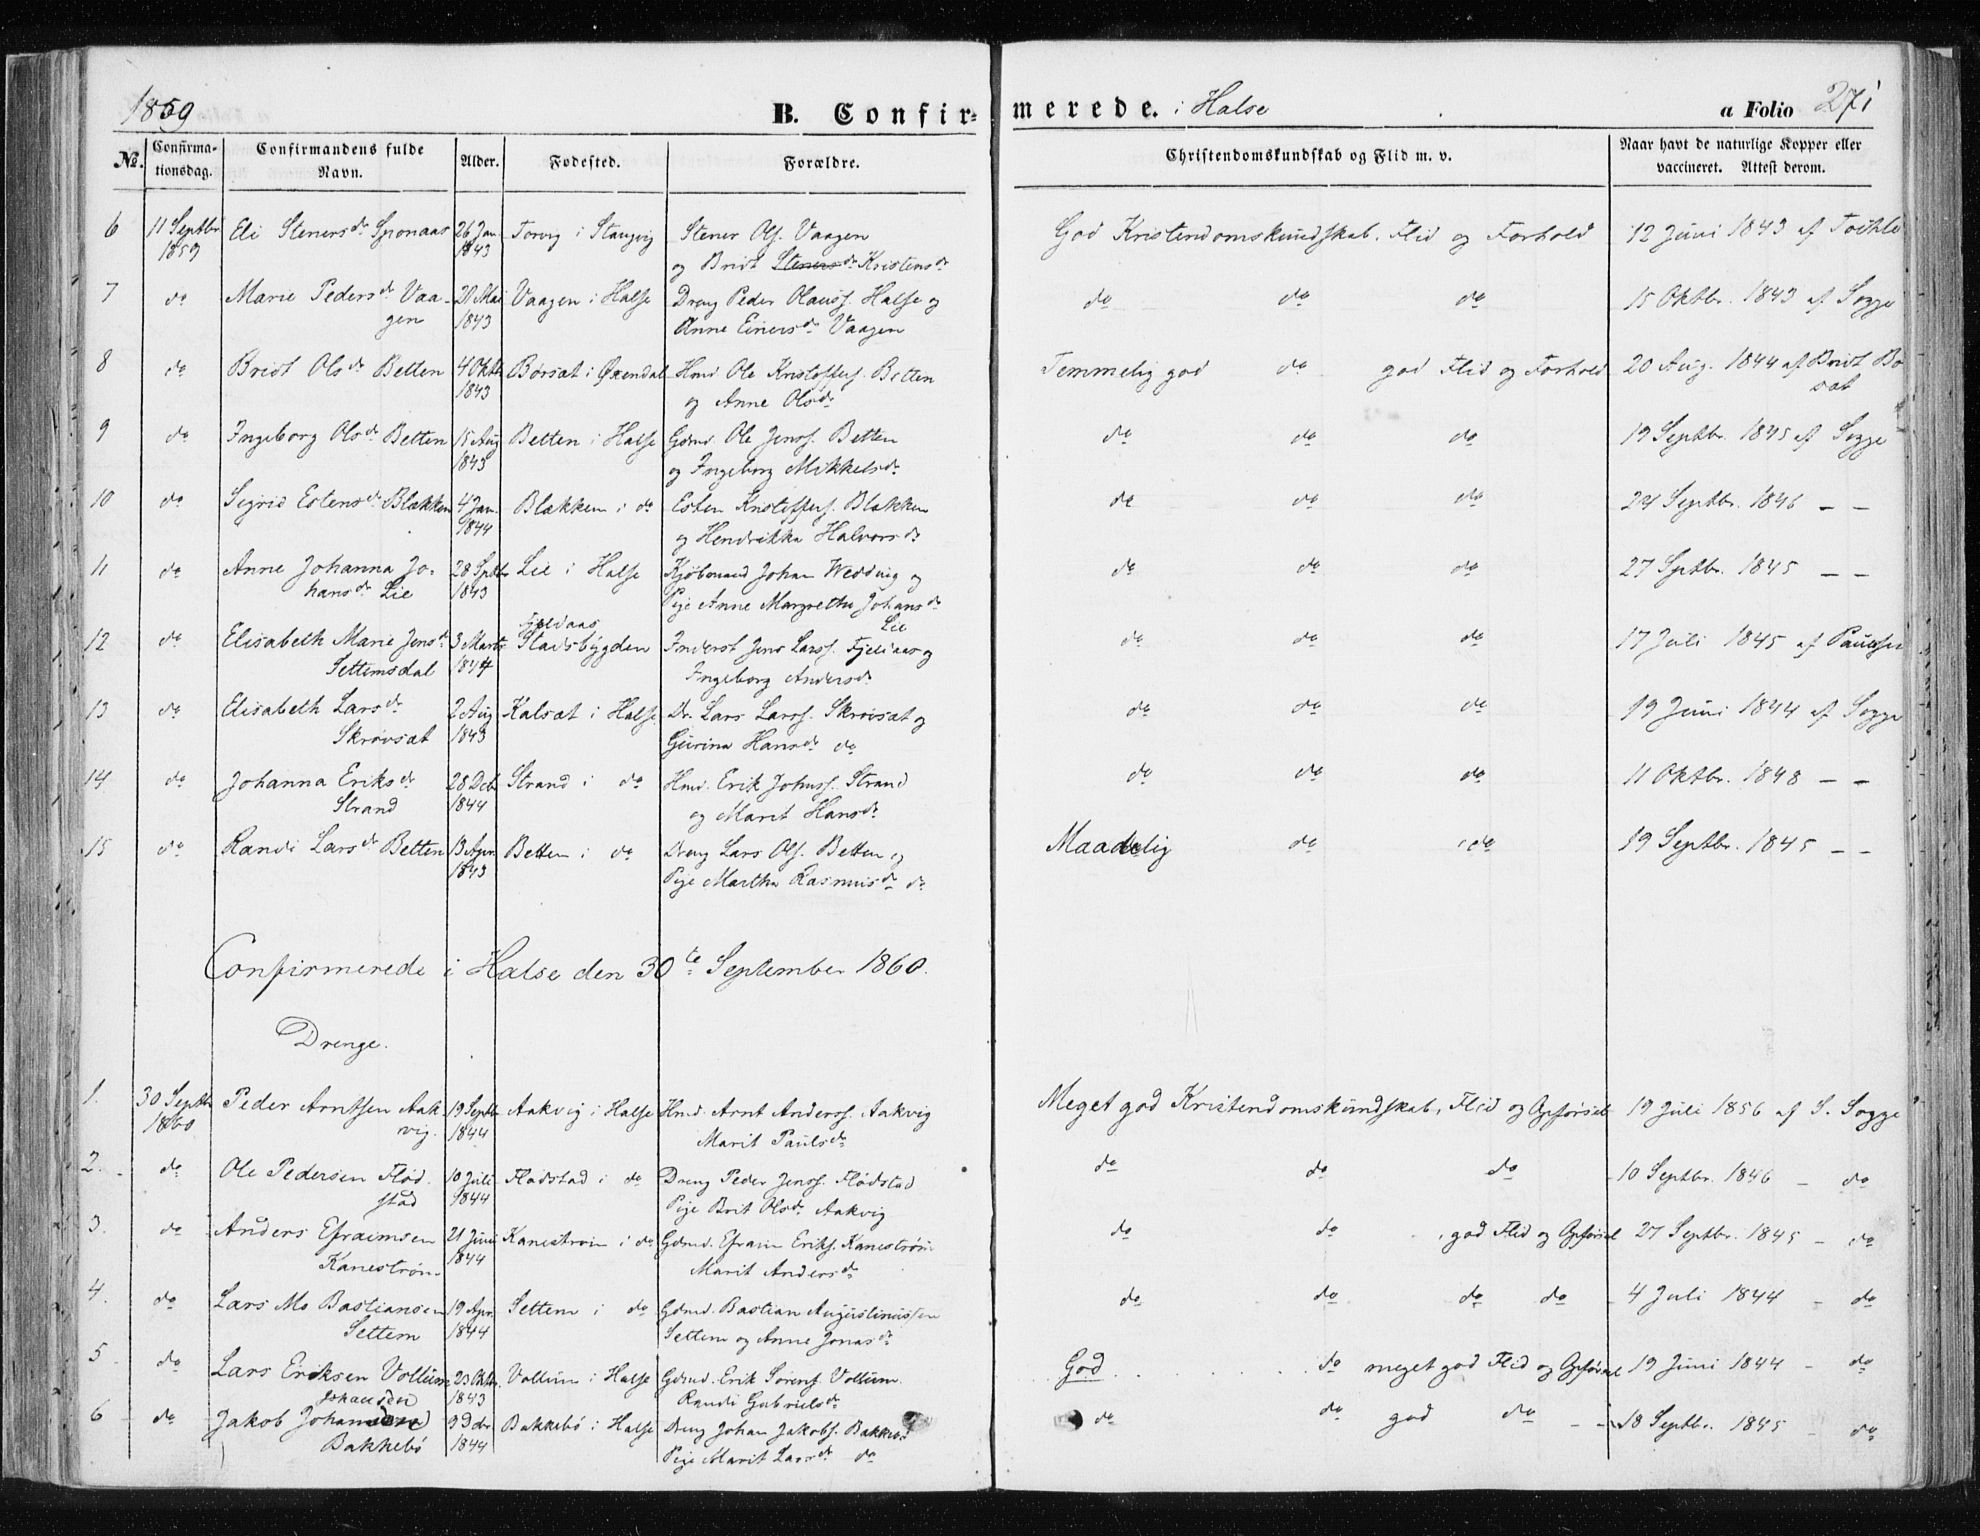 1859 B. Confirmerede. i Halse a Folio 271
No. Confirmationsdag. Confirmandens fulde Navn. Alder. Fødested. Forældre. Christendomskundskab og Flid m. v. Naar havt de naturlige Kopper eller vaccineret. Attest derom.
6 11 Septbr Eli Stenersdr Sponaas 26 Jan. Torvig i Stangvig Stener Ols. Vaagen God Kristendomskundskab, Flid og Forhold 12 Juni 1843 af
1859 1843 og Brit Stenersdr Kristensdr
7 do Marie Pedersdr Vaa- 20 Mai Vaagen i Halse Dreng Peder Olauss. Halse og do do do 15 Oktbr. 1843 af Sogge
gen 1843 Anne Einersdr Vaagen
8 do Brit Olsdr Betten 4 Oktbr Børsæt i Øxendal Hmd Ole Kristoffers. Betten Temmelig god do god Flid og Forhold 20 Aug. 1844 af Brit Bo
1843 og Anne Olsdr sæt
9 do Ingeborg Olsdr Betten 15 Aug Betten i Halse Gdmd. Ole Jenss. Betten do do do 19 Septbr. 1845 af Sogge
1843 og Ingeborg Mikkelsdr
10 do Sigrid Estensdr Blækken 4 Jan. Blækken i do Esten Kristoffers. Blækken do do do 24 Septbr. 1846 – –
1844 og Hendrikka Halvorsdr
11 do Anne Johanna Jo- 28 Septbr Lie i Halse Kjøbmand Johan Wedding og do do do 27 Septbr. 1845 – –
hansdr Lie 1843 Pige Anne Margretha Johansdr
Fjeldaas Lie
12 do Elisabeth Marie Jensdr 3 Marts Stadsbygden Inderst Jens Larss. Fjeldaas og do do do 17 Juli 1845 af Paulsen
Settemsdal 1844 Ingeborg Andersdr
13 do Elisabeth Larsdr 2 Aug Kalsæt i Halse Dr. Lars Larss. Skrøvsæt og do do do 19 Juni 1844 af Sogge
Skrøvsæt 1843 Gjurina Hansdr do
14 do Johanna Eriksdr 28 Decb Strand i do Hmd. Erik Johnss. Strand do do do 11 Oktbr. 1848 – –
Strand 1844 og Marit Hansdr
15 do Randi Larsdr Betten 13 Apr. Betten i do Dreng Lars Ols. Betten og Maadelig do do 19 Septbr. 1845 – –
1843 Pige Martha Rasmusdr do
Confirmerede i Halse den 30te September 1860.
Drenge.
1. 30 Septbr Peder Arntsen Aak- 19 Septbr Aakvig i Halse Hmd. Arnt Anderss. Aakvig Meget god Kristendomskundskab, Flid og Opførsel 19 Juli 1856 af S. Sogge
1860 vig. 1844 Marit Paulsdr
2. do Ole Pedersen Flød- 10 Juli Flødstad i do Dreng Peder Jenss. Flødstad do do do 10 Septbr. 1846 – do
stad 1844 Pige Brit Olsdr Aakvig
3. do Anders Efraimsen 21 Juni Kanestrøm i do Gdmd. Efraim Eriks. Kanestrøm do do , god Flid og Opførsel 27 Septbr. 1845 – do
Kanestrøm 1844 Marit Andersdr
4. do Lars Mo Bastiansen 19 Apr. Settem i do Gdmd. Bastian Augustinussen do do do do 4 Juli 1844 – do
Settem 1844 Settem og Anne Jonasdr
5 do Lars Eriksen Vollum 23 Oktbr. Vollum i Halse Gdmd. Erik Sørens. Vollum. God do meget god Flid og Opførsel 19 Juni 1844 – do
Johansen 1843 Randi Gabrielsdr
6 do Jakob 9 Dcbr. Bakkebø i Halse Dreng Johan Jakobs. Bakkebø do do god do 18 Septbr. 1845 – do
Bakkebø 1844 Pige Marit Larsdr do